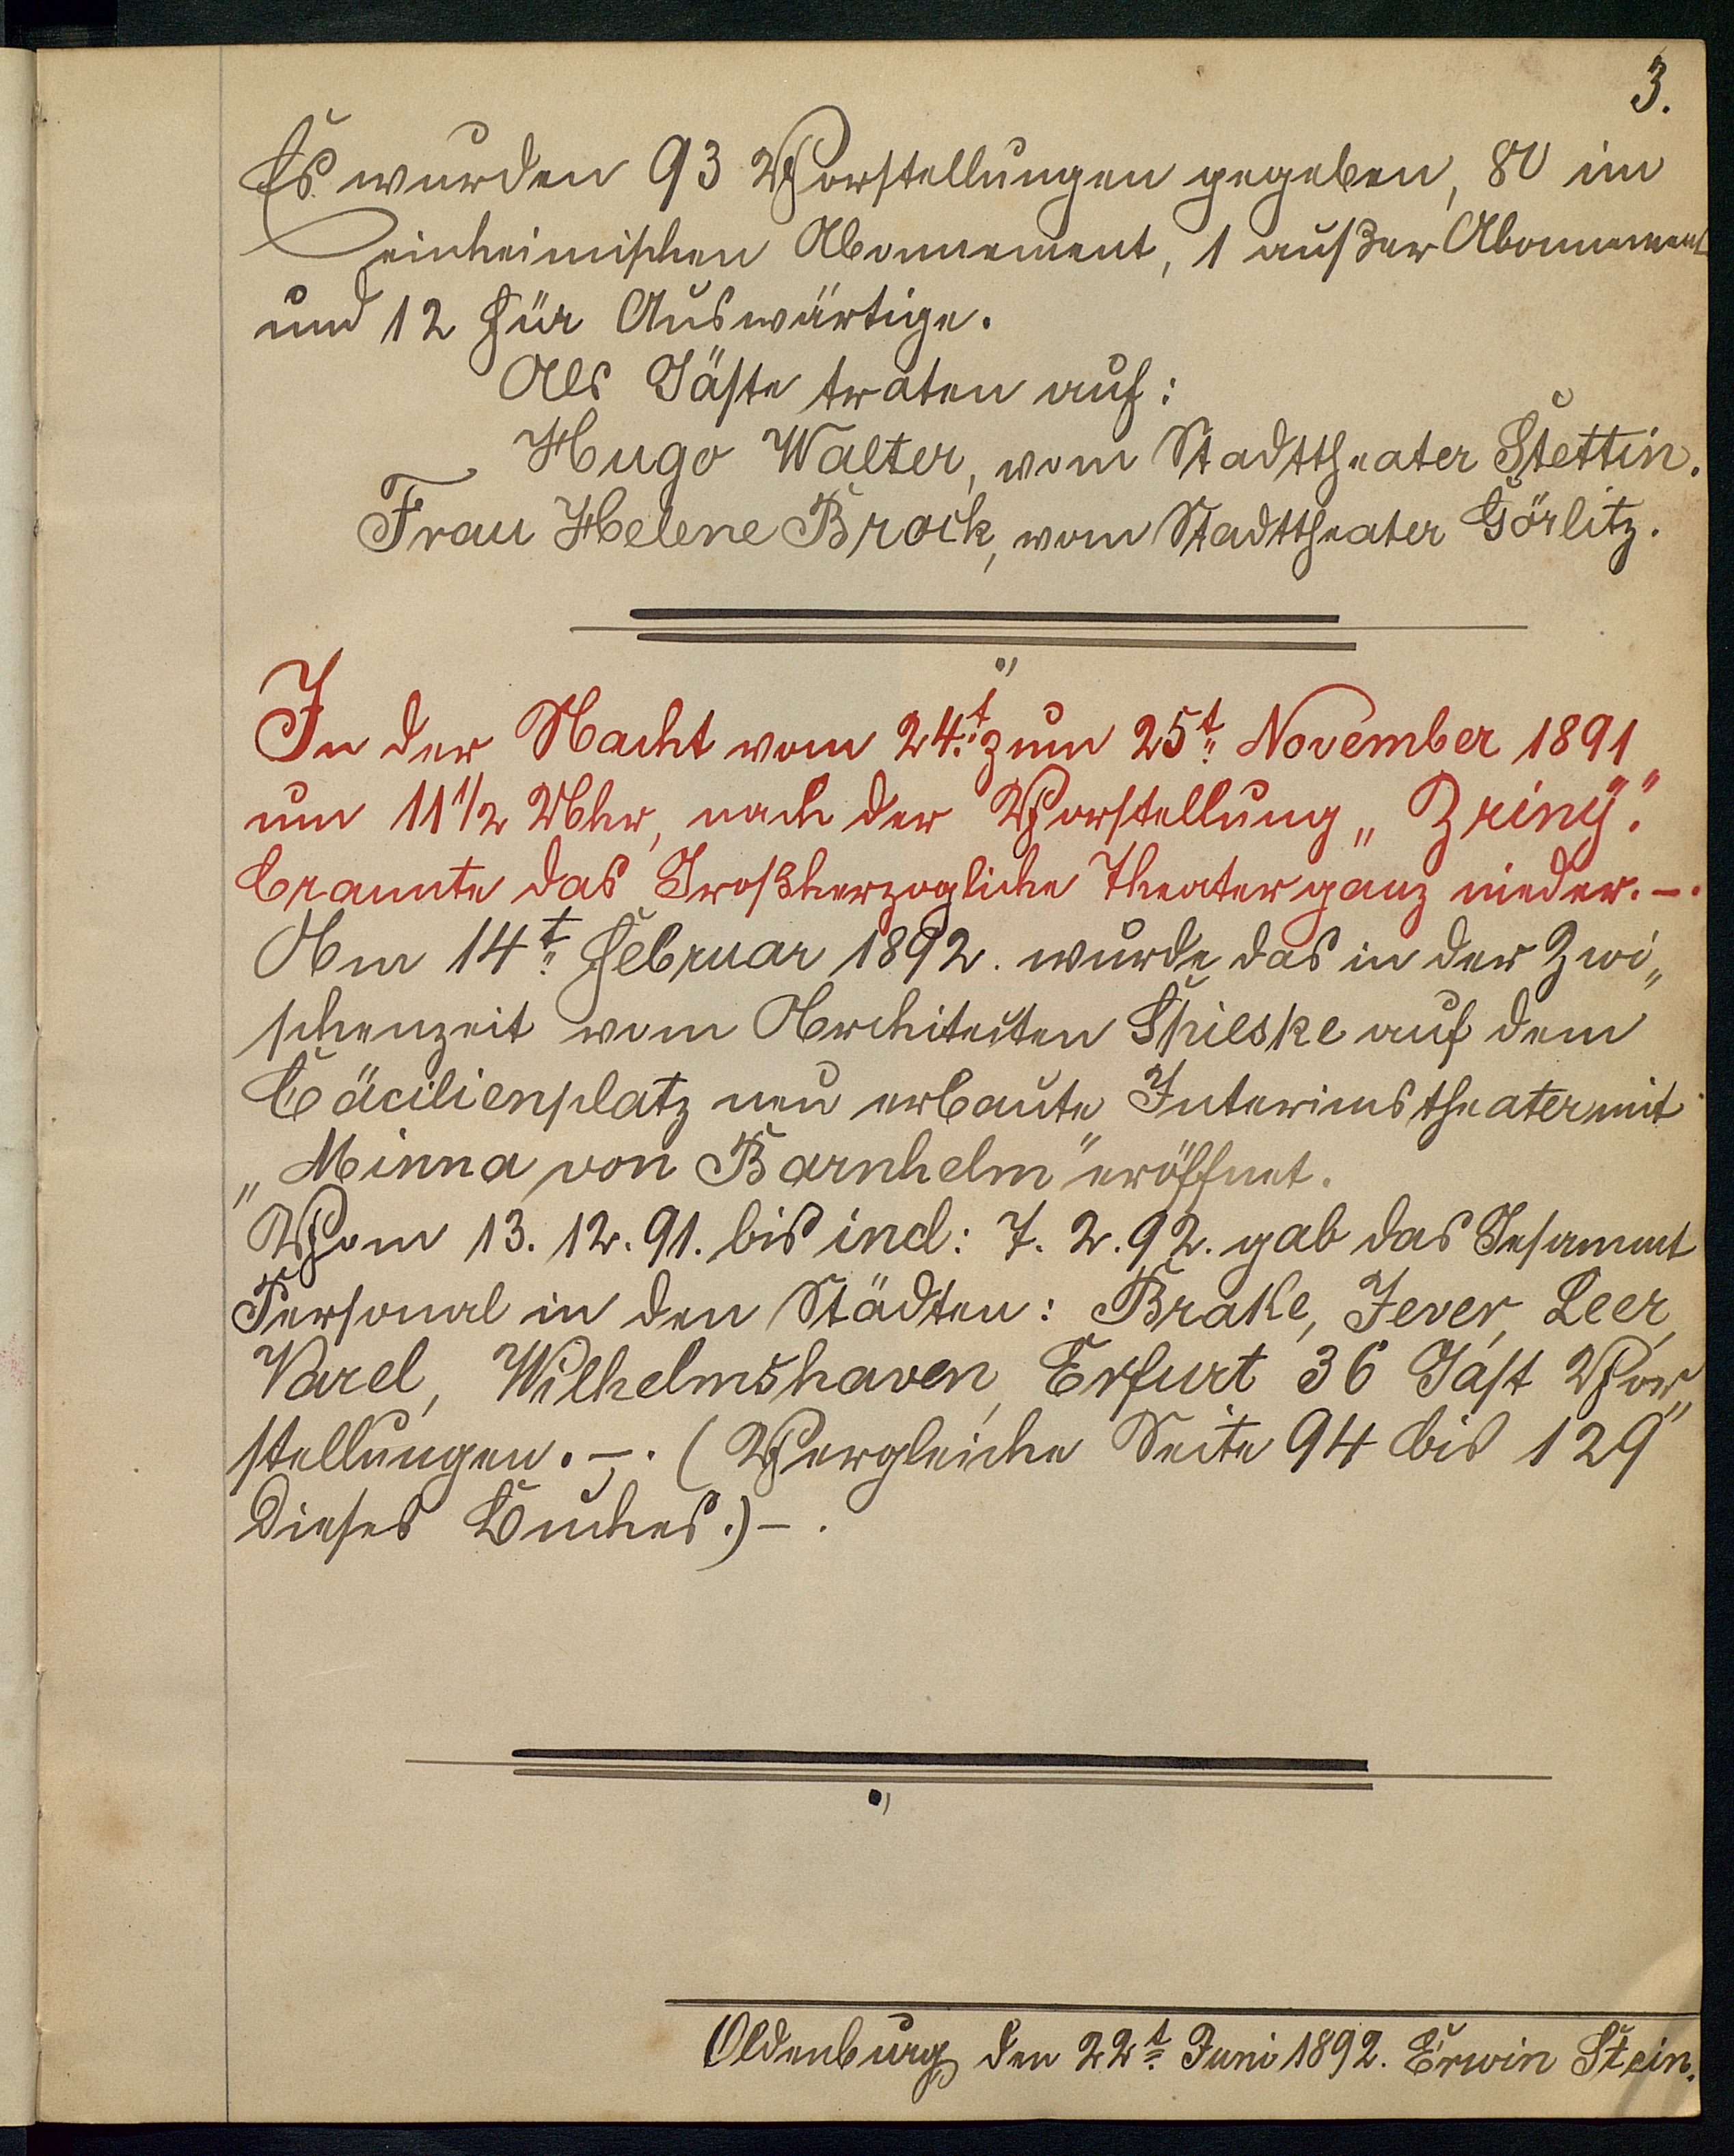 3.
Es wurden 93 Vorstellungen gegeben, 80 im
einheimischen Abonnement, 1 außer Abonnement
und 12 für Auswärtige.
Als Gäste traten auf:
Hugo Walter, vom Stadttheater Stettin.
Frau Helene Brock, vom Stadttheater Görlitz.
In der Nacht vom 24.t zum 25t November 1891
um 11 1/2 Uhr, nach der Vorstellung „Zriny".
brannte das Großherzogliche Theater ganz nieder. –.
Am 14t Februar 1892. wurde das in der Zwi„
schenzeit vom Architecten Spieske auf dem
Cäcilienplatz neu erbaute Interimstheater mit
„Minna von Barnhelm" eröffnet.
Vom 13. 12. 91. bis incl: 7. 2. 92. gab das Gesammt
Personal in den Städten: Brake, Jever, Leer,
Varel, Wilhelmshaven, Erfurt 36 Gast Vor„
stellungen. –. (Vergleiche Seite 94 bis 129
dieses Buches.) –.
Oldenburg den 22t Juni 1892. Erwin Stein.